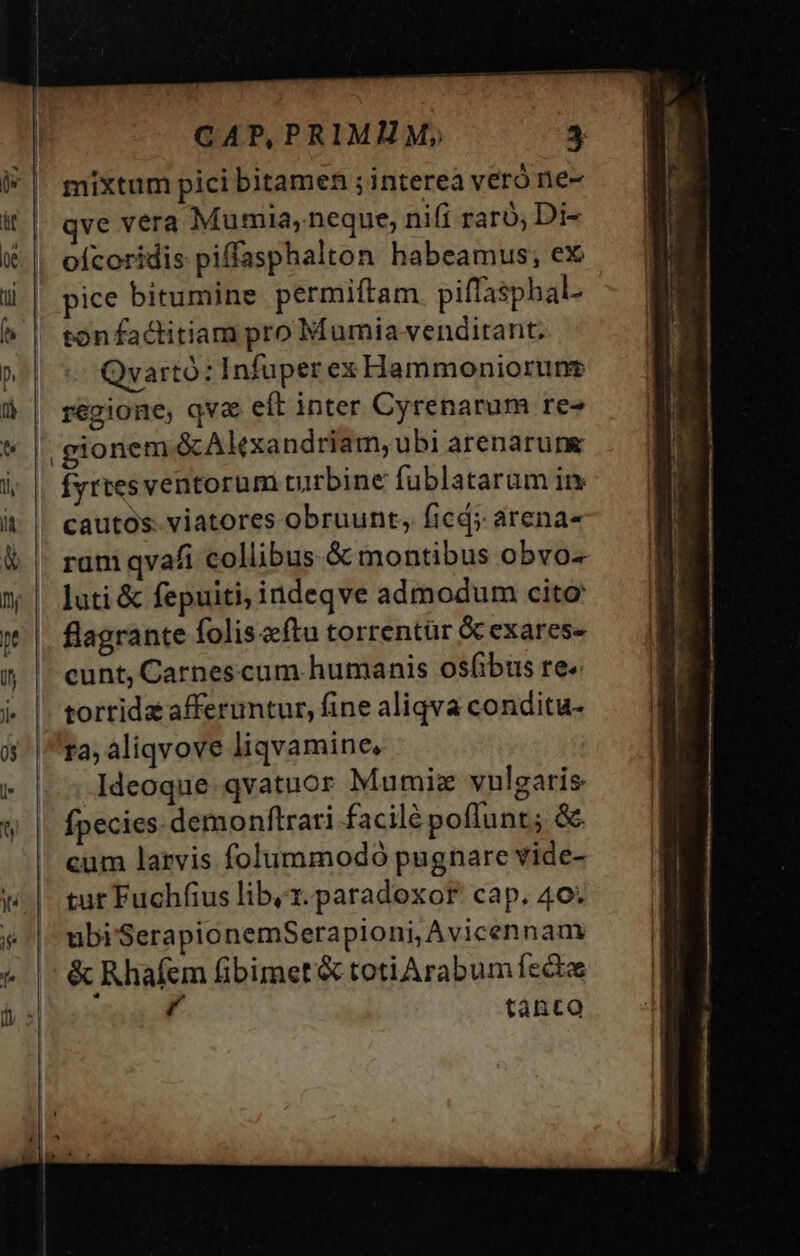 CAP, PRIMUM, 3
mixtum pici bitamen ; interea veró ne-
qve vera Mumia, neque, niſi raró, Di-
oſcoridis piſſasphalton habeamus, ex
pice bitumine permiſtam piſſasphal-
ton factitiam pro Mumia venditant.
Qvartó: Inſuper ex Hammoniorum
regione, qvæ eſt inter Cyrenarum re-
gionem & Alexandriam, ubi arenarum
ſyrtes ventorum turbine ſublatarum in
cautos viatores obruunt, ſicq; arena-
rum qvaſi collibus & montibus obvo-
luti & ſepulti, indeqve admodum cito
flagrante ſolis æſtu torrentur & exares-
cunt, Carnes cum humanis osſibus re-
torridæ afferuntur, ſine aliqva conditu-
ra, aliqvove liqvamine.
Ideoque qvatuor Mumiæ vulgaris
ſpecies demonſtrari facilè poſſunt; &
cum larvis ſolummodó pugnare vide-
tur Fuchſius lib. 1. paradoxor cap. 40.
ubi Serapionem Serapioni, Avicennam
& Rhaſem ſibimet & toti Arabum ſectæ
tanto